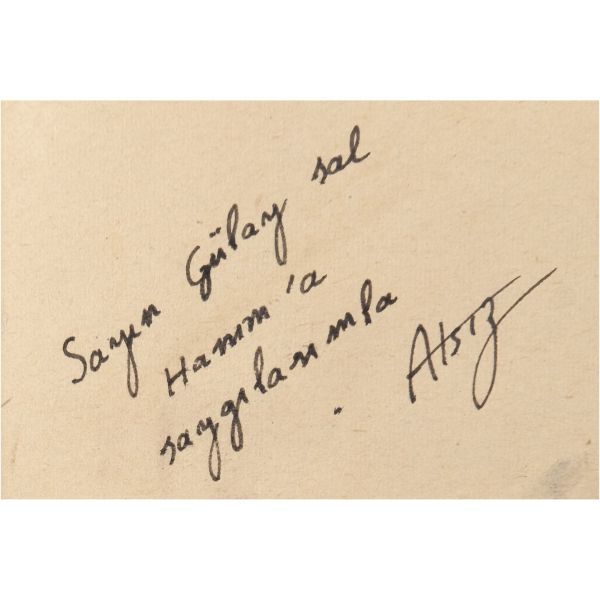 Sayın Gülay sal
Hanım'a
saygılarımla.
Atsız